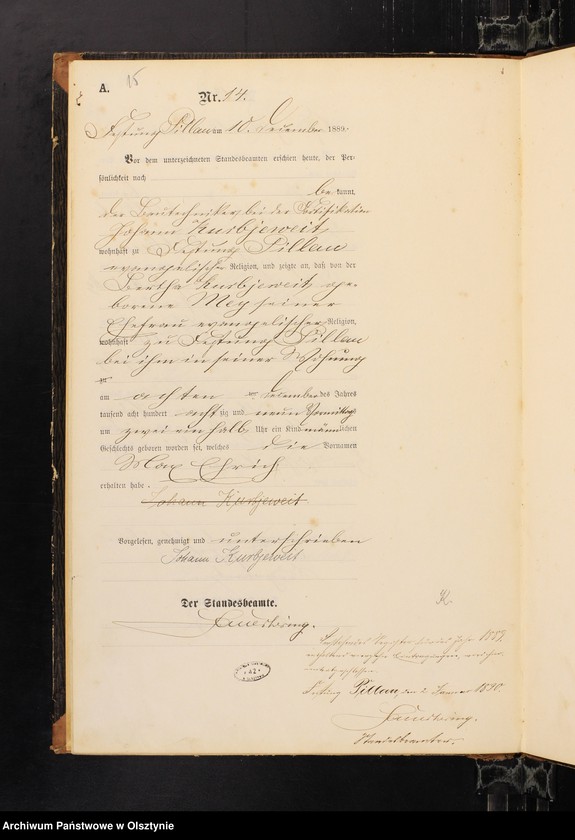 A.
15
Nr. 14.
Festung Pillau am 10. Dezember 1889.
Vor dem unterzeichneten Standesbeamten erschien heute, der Per-
sönlichkeit nach
be kannt,
der Bautechniker bei der Fortifikation
Johann Kurbjeweit
wohnhaft zu Festung Pillau
evangelischer Religion, und zeigte an, daß von der
Bertha Kurbjeweit ge-
borene Mey seiner
Ehefrau evangelischer Religion,
wohnhaft zu Festung Pillau
bei ihm in seiner Wohnung
zu
am achten Dezember des Jahres
tausend acht hundert acht zig und neun Vormittags
um zwei einhalb Uhr ein Kind männlichen
Geschlechts geboren worden sei, welches die Vornamen
Max Ehrich
erhalten habe.
Johann Kurbjeweit
Vorgelesen, genehmigt und unterschrieben
Johann Kurbjeweit
Der Standesbeamte.
K
Register für das Jahr 1889
Festung Pillau den Januar 1890.
Standesbeamter.
Archiwum Państwowe w Olsztynie